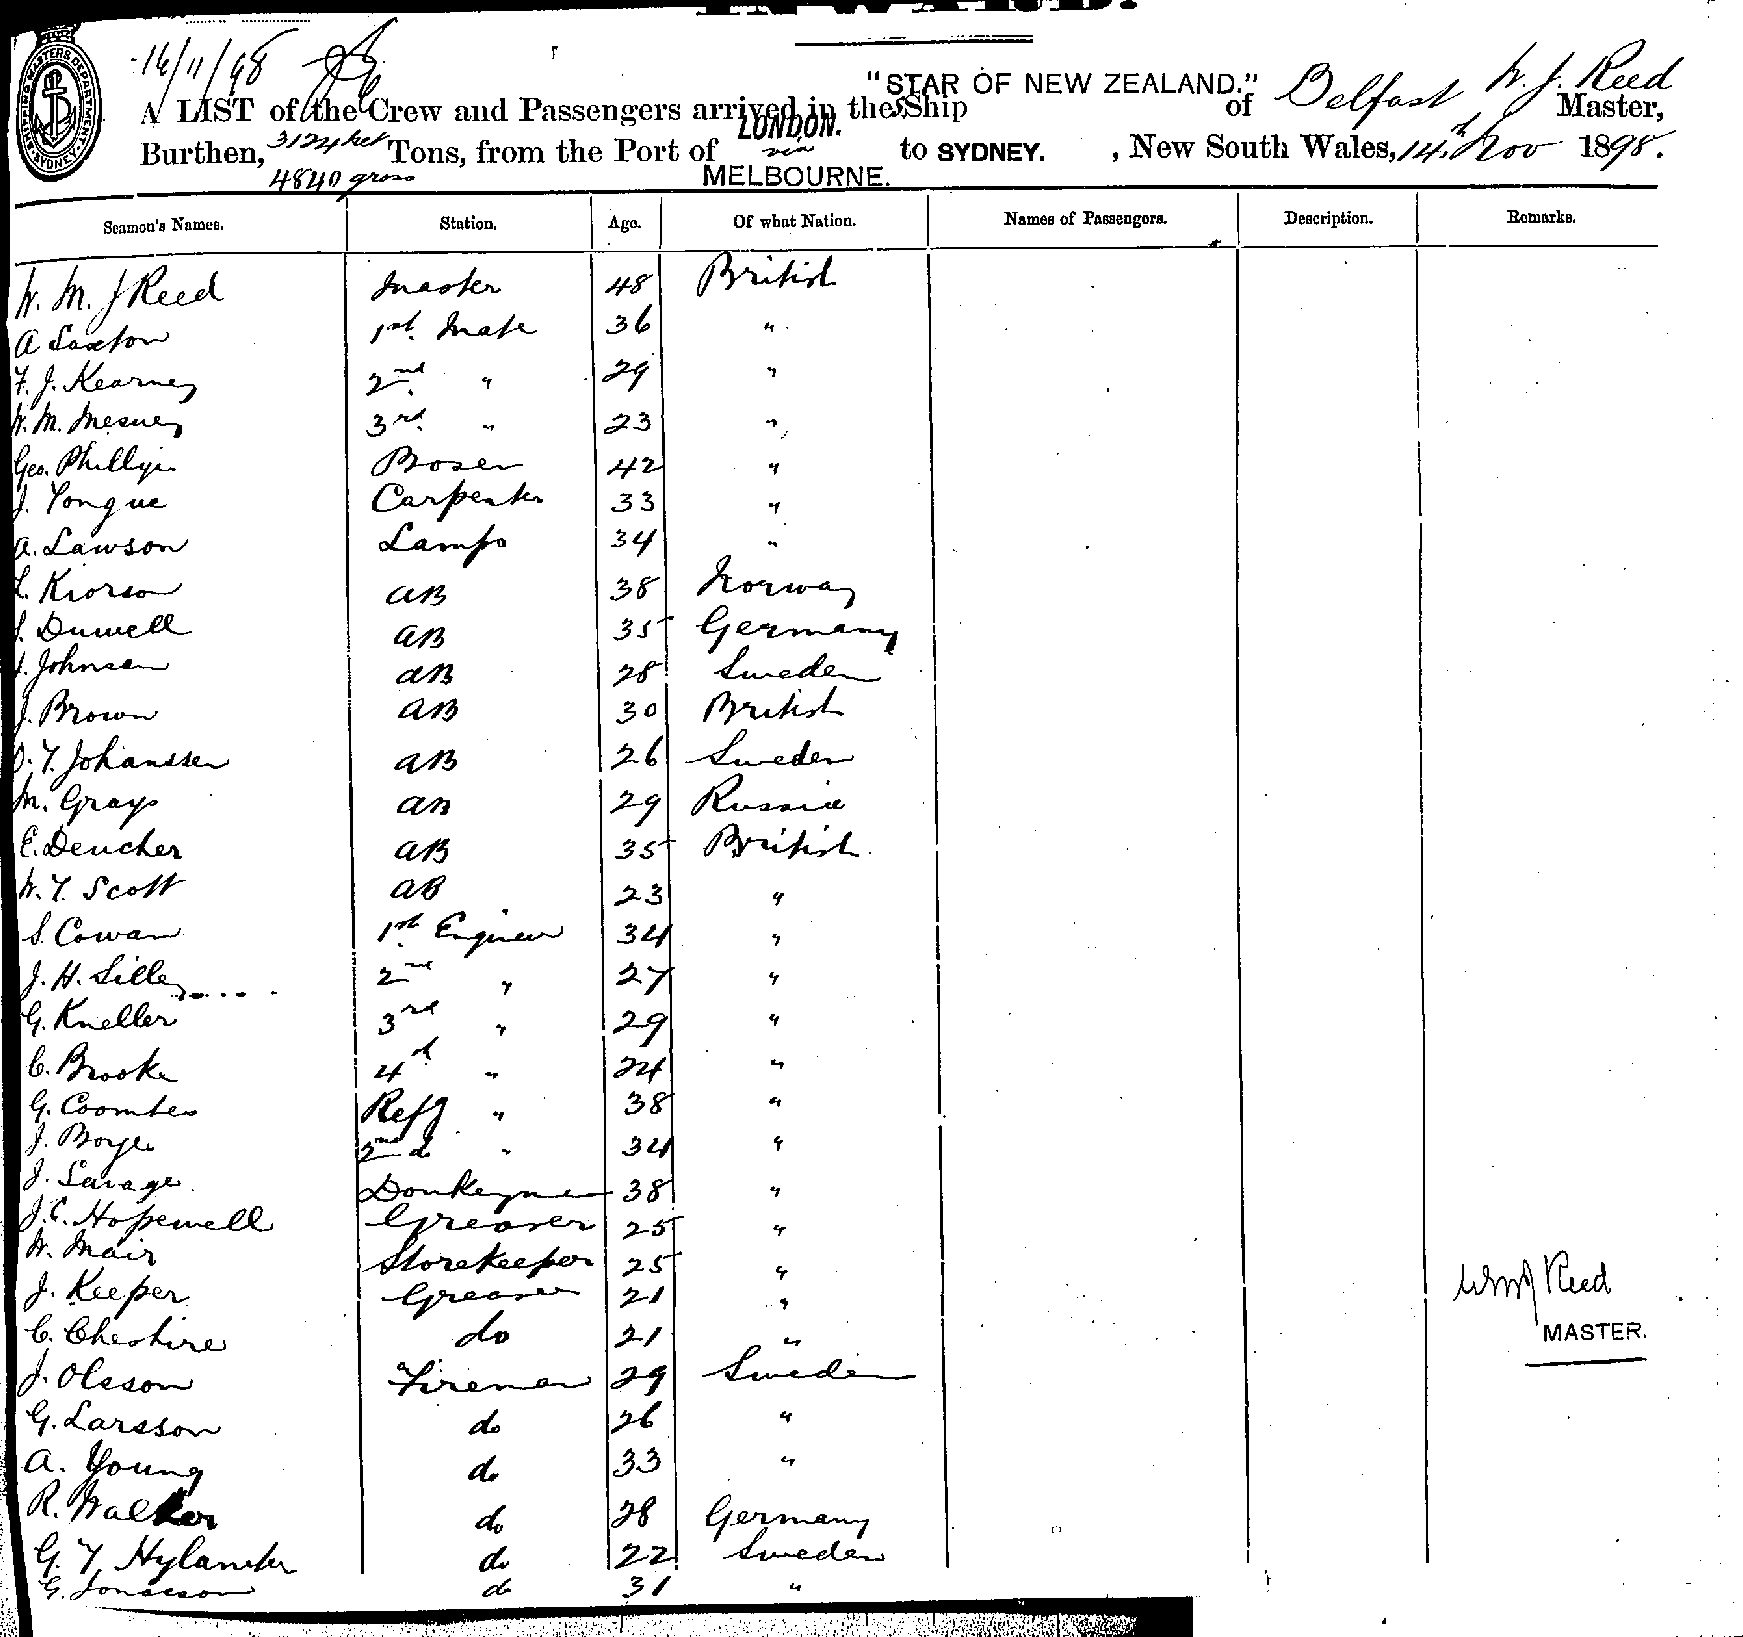 INWARD.
16/11/98
"STAR OF NEW ZEALAND." Belfast W. J. Reed
A LIST of the Crew and Passengers arrived in the Ship of Master,
LONDON.
Burthen, 3124 net Tons, from the Port of via to SYDNEY. , New South Wales, 14th Nov 1898.
4840 gross MELBOURNE.
Seamen's Names. Station. Age. Of what Nation. Names of Passengers. Description. Remarks.
W. M. J Reed Master 48 British
A Saxton 1st Mate 36 "
F. J. Kearney 2nd " 29 "
W. M. Mesney 3rd " 23 "
Geo. Phillips Bosen 42 "
J. Tongue Carpenter 33 "
A. Lawson Lamps 34 "
Kiorson AB 38 Norway
Duwell AB 35 Germany
Johnsen AB 28 Sweden
J. Brown AB 30 British
O. T. Johanssen AB 26 Sweden
M. Grays AB 29 Russia
E. Deucher AB 35 British
W. T. Scott AB 23 "
S. Cowan 1st Engineer 34 "
J. H. Silley 2nd " 27 "
G. Kneller 3rd " 29 "
C. Brooke 4th " 24 "
G. Coombes Refg " 38 "
J. Boyle 2nd do " 34 "
J. Savage Donkeyman 38 "
J. C. Hopewell Greaser 25 "
W. Mair Storekeeper 25 "
J. Keeper Greaser 21 "
C. Cheshire do 21 "
J. Olsson Fireman 29 Sweden
G. Larsson do 26 "
A. Young do 33 "
R. Walker do 28 Germany
G. T. Hylander do 22 Sweden
G. Jonasson do 31 "
Wm J Reed
MASTER.